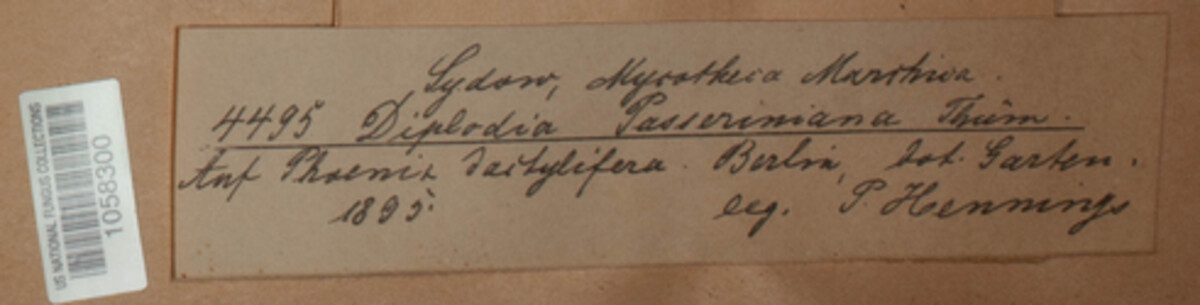 Sydow, Mycotheca Marchica.
4495 Diplodia Passeriniana Thüm.
Auf Phoenix dactylifera. Berlin, bot. Garten.
1895. leg. P. Hennings
US NATIONAL FUNGUS COLLECTIONS
1058300